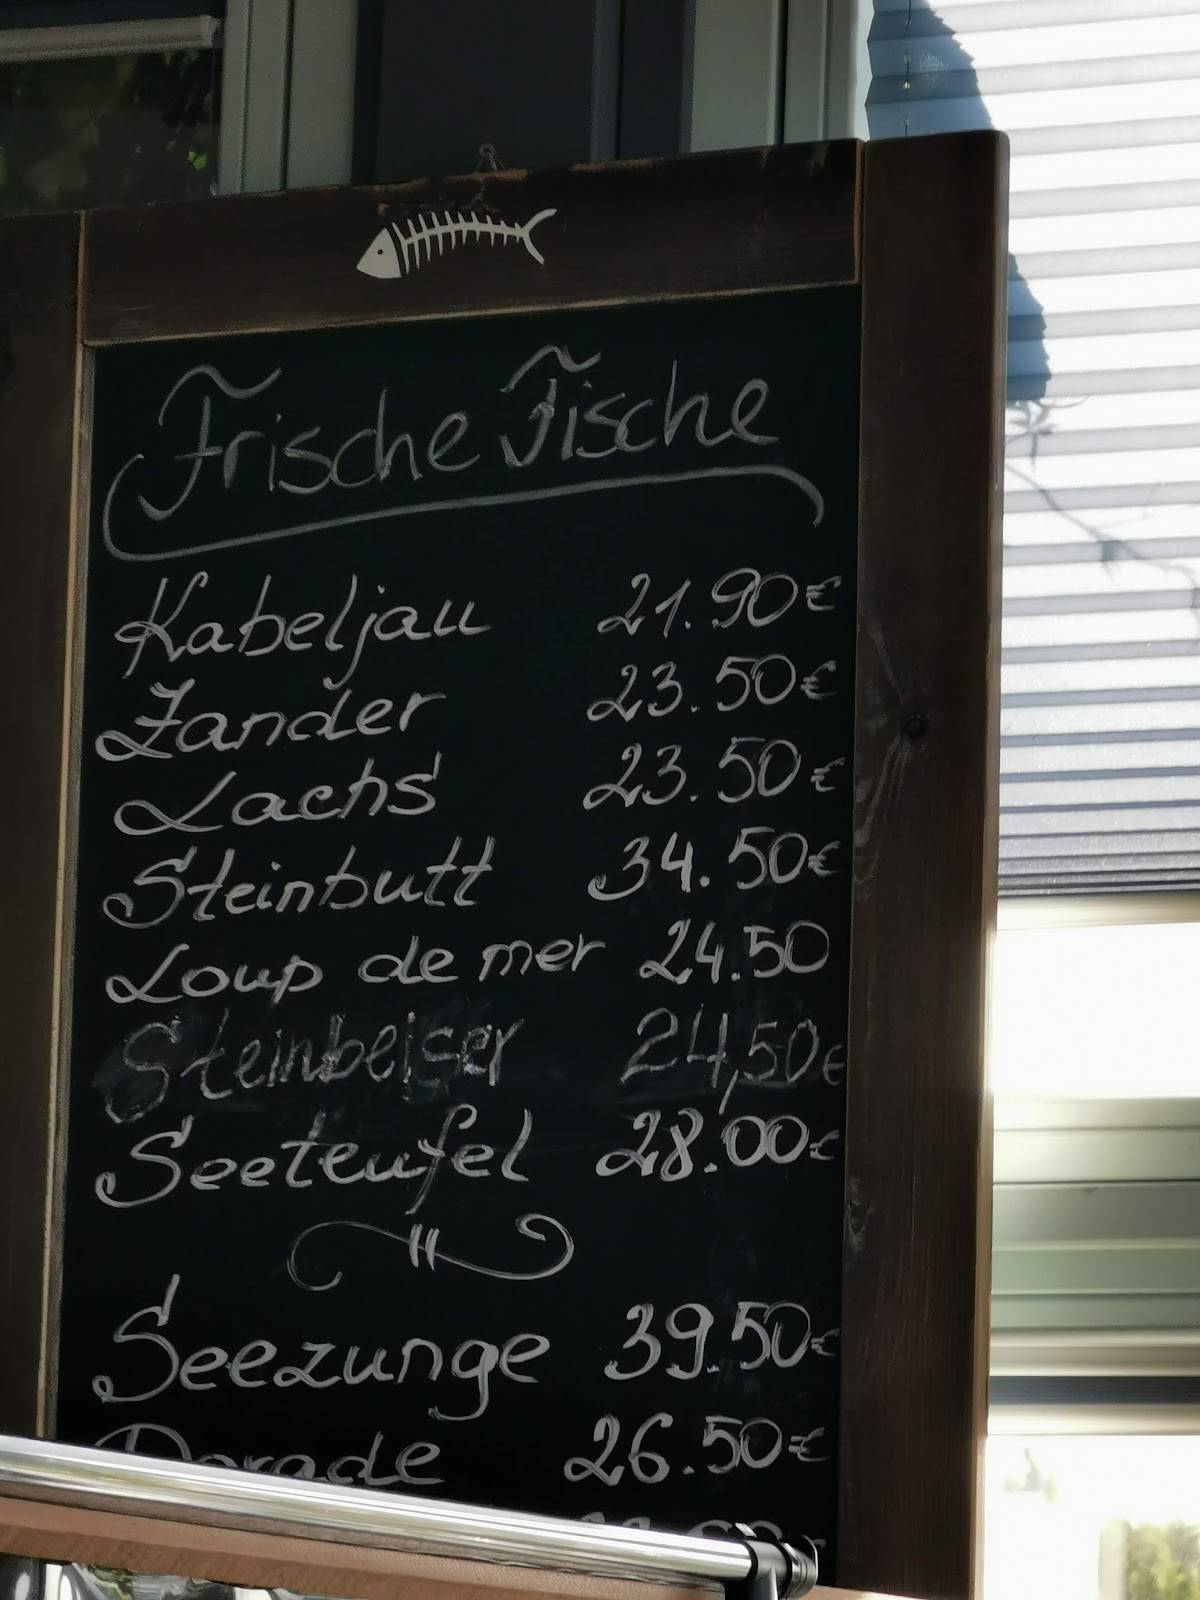 Frische Fische
Kabeljau 21.90€
Zander 23.50€
Lachs 23.50€
Steinbutt 34.50€
Loup de mer 24.50
Steinbeiser 24,50€
Seeteufel 28.00€
Seezunge 39.50€
Dorade 26.50€